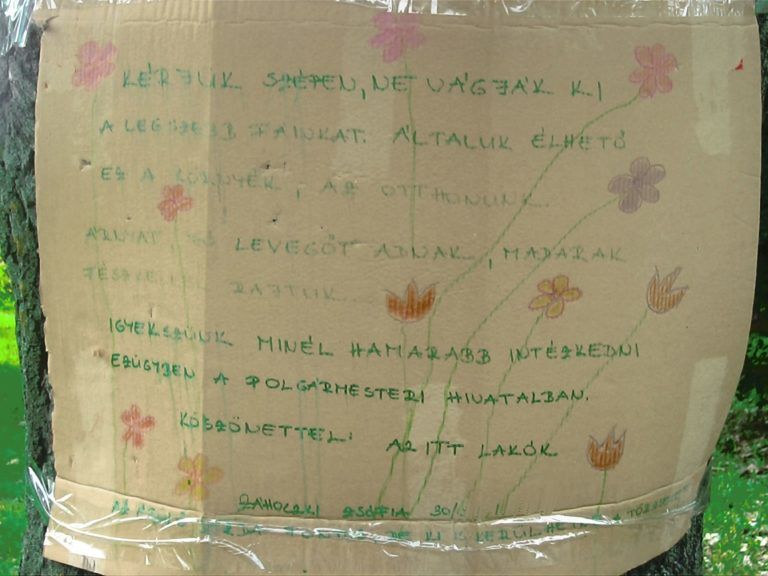 KÉRJÜK SZÉPEN, NE VÁGJÁK KI
A LEGSZEBB FÁINKAT. ÁLTALUK ÉLHETŐ
EZ A KÖRNYÉK, AZ OTTHONUNK.
ÁRNYAT, LEVEGŐT ADNAK, MADARAK
RAJTUK
IGYEKSZÜNK MINÉL HAMARABB INTÉZKEDNI
EZÜGYBEN A POLGÁRMESTERI HIVATALBAN.
KÖSZÖNETTEL: AZ ITT LAKÓK
ZSÓFIA 30/